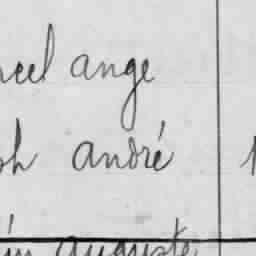 cel ange
ph andré
in auguste